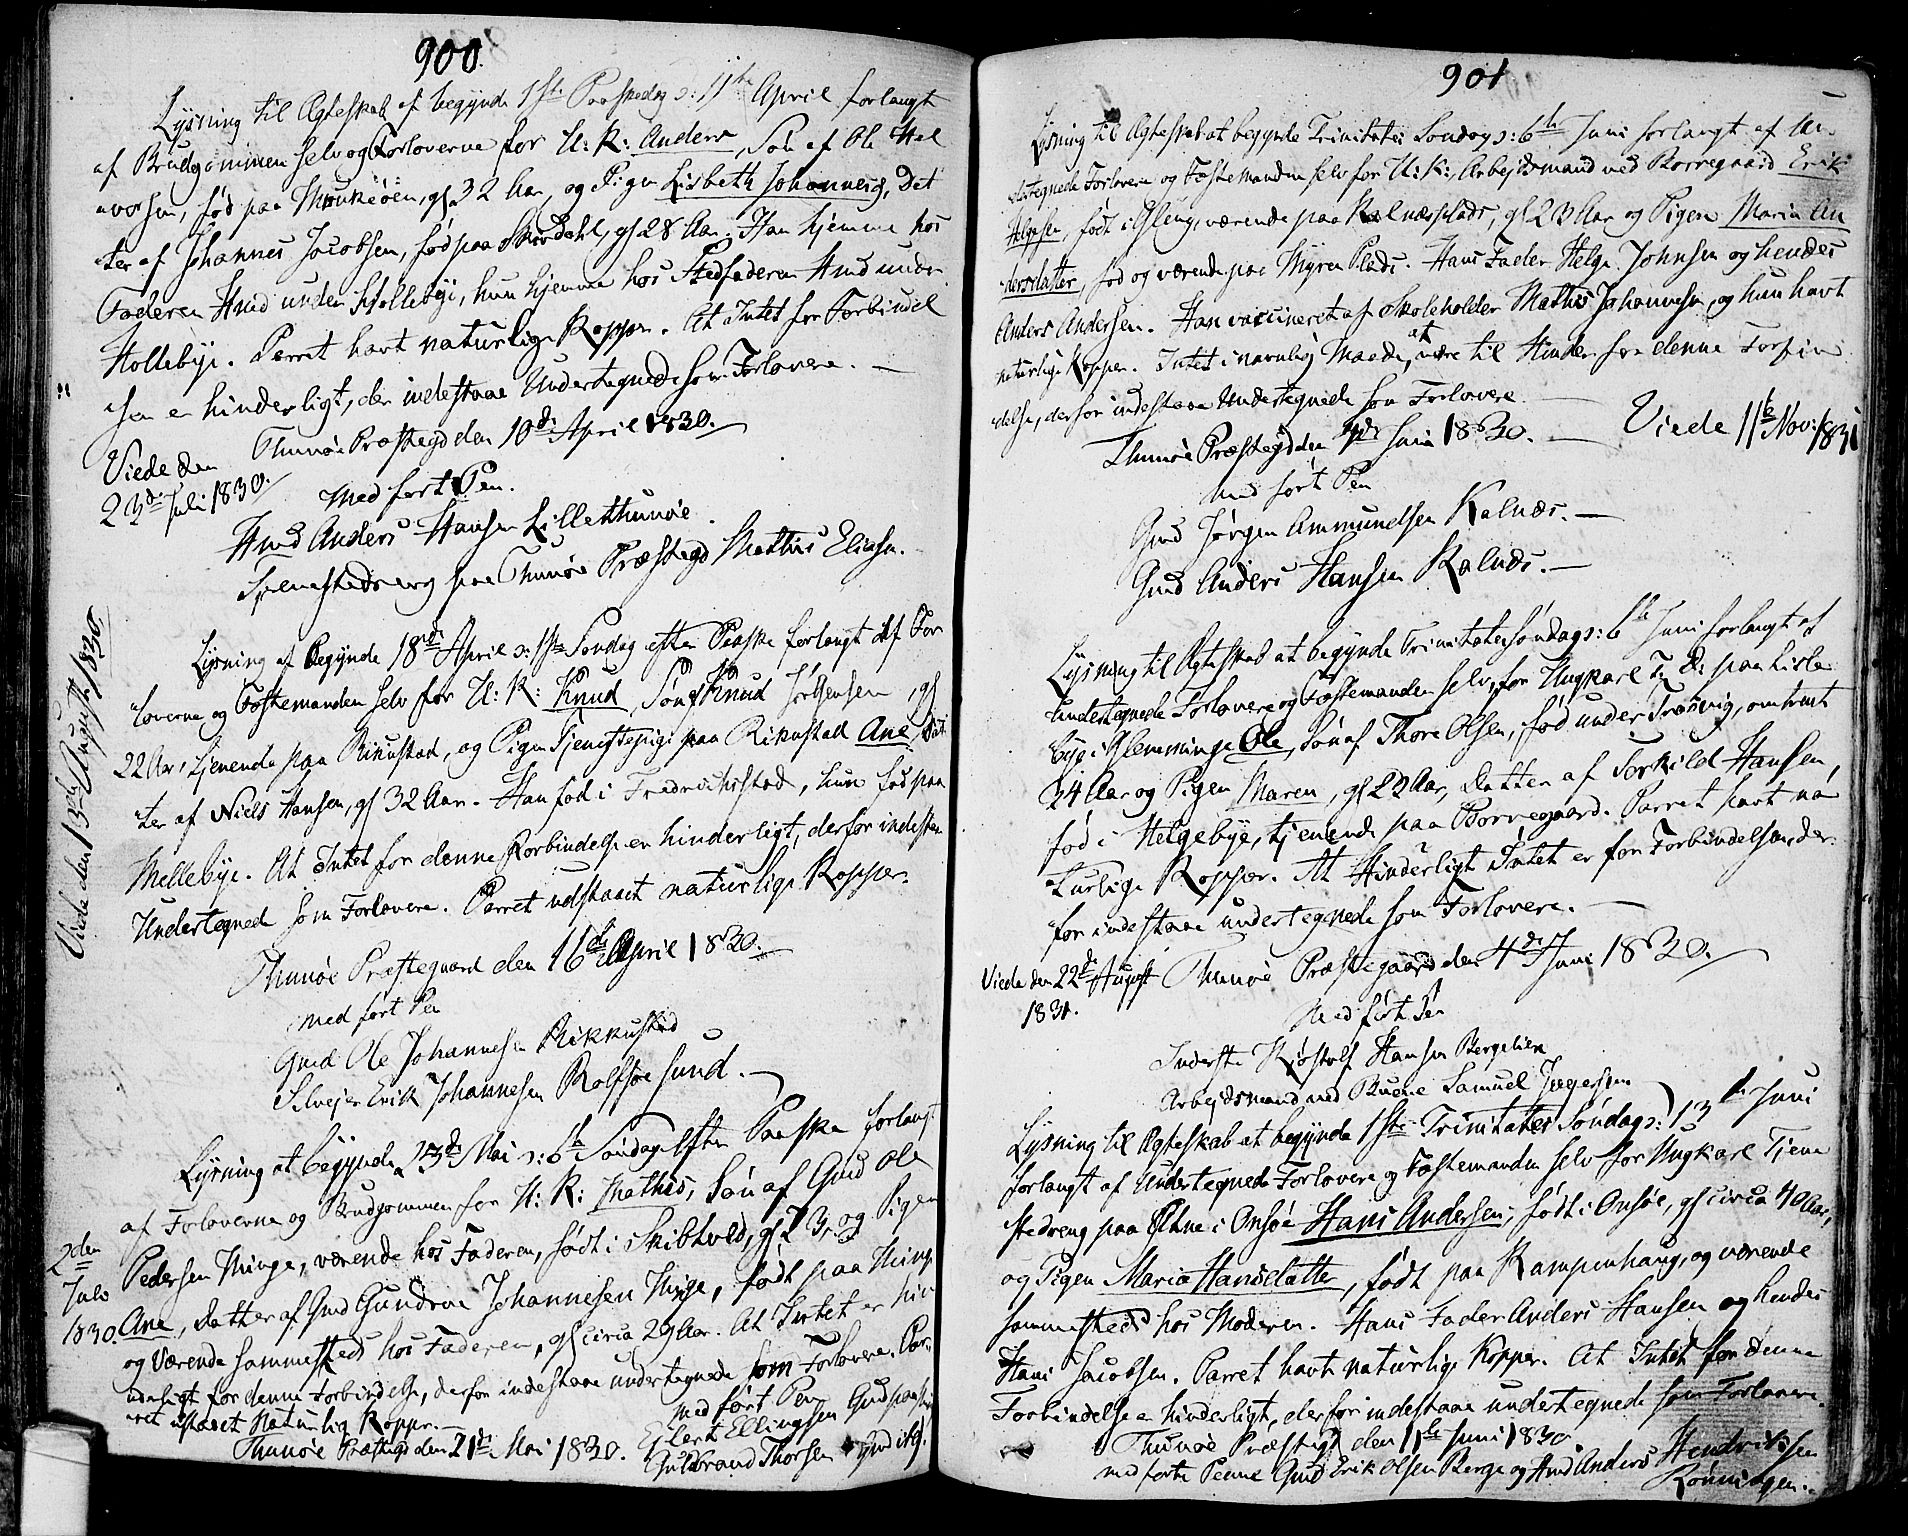 900.
Lysning til Ægteskab at begynde 1ste Paaskedag ɔ: 11te April forlangt
af Brudgommen selv og Forloverne for U: K: Anders, Søn af Ole Hal
vorsen, født paa Munkøen, gl 32 Aar, og Pigen Lisbeth Johannesd, Dat
ter af Johannes Jacobsen, fød paa Skardahl, gl 28 Aar. Han hjemme hos
Faderen Hmd under Hollebye, hun hjemme hos Stedfaderen Hmd under
Hollebye. Parret havt naturlige Kopper. At Intet for Forbindel
sen er hinderligt, der indestaae Undertegnede som Forlovere. —
Thunøe Præstegd den 10de April 1830.
Viede den
23de Juli 1830.
Med ført Pen.
Hmd Anders Hansen Lille Thunøe.
paa Thunøe Præstegd Mathis Eliasen.
Lysning at begynde 18de April ɔ: 1ste Søndag efter Paaske forlangt af For
loverne og Fæstemanden selv for U: K: Knud, Søn af Knud Jørgensen, gl
22 Aar, tjenende paa Rikustad, og Pigen Tjenestepige paa Rikustad Ane, Dat
ter af Niels Hansen, gl 32 Aar. Han fød i Fredrichstad, hun fød paa
Mellebye. At Intet for denne Forbindelse er hinderligt, derfor indestaa
Undertegned som Forlovere. Parret udstaaet naturlige Kopper.
Thunøe Præstegaard den 16de April 1830. —
Viede den 13de August 1830
med ført Pen
Gmd Ole Johannesen Rikkustad
Selvejer Erik Johannesen Rolfsøesund. —
Lysning at begynde 23de Mai ɔ: 6te Søndag efter Paaske forlangt
af Forloverne og Brudgommen for U: K: Mathis, Søn af Gmd Ole
Pedersen Thinge, værende hos Faderen, født i Skibtved, gl 23, og Pigen
Ane, Datter af Gmd Johannesen Thinge, født paa Thinge
og værende sammesteds hos Faderen, gl circa 29 Aar. At Intet er hin
derligt for denne Forbindelse, derfor indestaae undertegnede som Forlovere. Par
ret udstaaet naturlig Kopper. —
2den
Julo
1830.
Thunøe Præstegd den 21de Mai 1830.
med ført Pen
Eilert Ellingsen Gmd paa
Guldbrand Thorsen Gmd
901
Lysning til Ægteskab at begynde Trinitatis Søndag ɔ: 6te Juni forlangt af Un
dertegnede Forlovere og Fæstemanden selv for U: K:, Arbejdsmand ved Borregaard Erik
Helgesen, født i Gleng, værende paa Kalnæsplads, gl 23 Aar og Pigen Maria An
dersdatter, fød og værende paa Myren Plads. Hans Fader Helge Johnsen og hendes
Anders Andersen. Han vaccineret af Skoleholder Mathis Johannesen, og hun havt
naturlige Kopper. Intet i navnlig Maade, at være til Hinder for denne Forbin
delse, derfor indestaae Undertegnede som Forlovere. —
Thunøe Præstegd den 4de Juni 1830. — Viede 11te Nov: 1831
med ført Pen
Gmd Jørgen Ammundsen Kalnæs. —
Gmd Anders Hansen Kalnæs. —
Lysning til Ægteskab at begynde Trinitatissøndag ɔ: 6te Juni forlangt af
undertegnede Forlovere og Fæstemanden selv, for Ungkarl T: D: paa Lisle
bye i Glemminge Ole, Søn af Thore Olsen, fød under Trosvig, omtrent
24 Aar og Pigen Maren, gl 22 Aar, Datter af Torkild Hansen,
fød i Helgebye, tjenende paa Borregaard. Parret havt na
turlige Kopper. At Hinderligt Intet er for Forbindelsen, der
for indestaae undertegnede som Forlovere. —
Viede den 22de August
1831.
Thunøe Præstegaard den 4de Juni 1830.
Med ført Pen
Inderste Hansen Bergelien
Arbejdsmand ved Samuel Jægersen
Lysning til Ægteskab at begynde 1ste Trinitatis Søndag ɔ: 13de Juni
forlangt af Undertegnede Forlovere og Fæstemanden selv for Ungkarl Tjene
stedreng paa Østne i Onsøe Hans Andersen, født i Onsøe, gl circa 40 Aar,
og Pigen Maria Hansdatter, født paa Kampenhaug, og værende
sammesteds hos Moderen. Hans Fader Anders Hansen og hendes
Hans Jacobsen. Parret havt naturlige Kopper. At Intet for denne
Forbindelse er hinderligt, derfor indestaae undertegnede som Forlovere.
Thunøe Præstegd den 11te Juni 1830
med førte Penne Gmd Erik Olsen Berge og Hmd Anders Hendriksen
Rønningen.